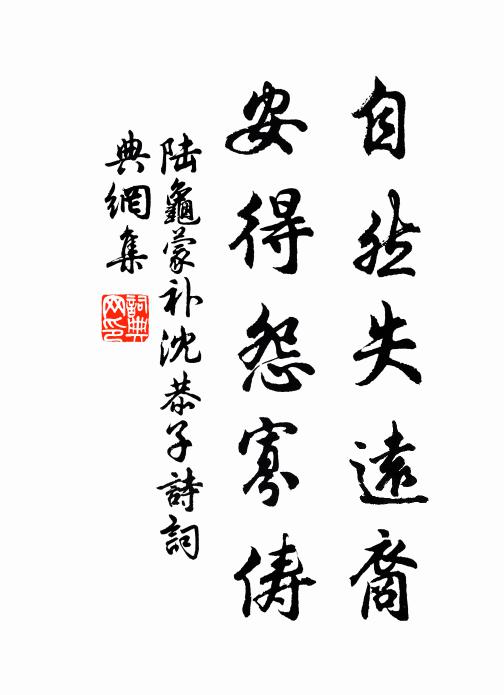 自然失遠裔
安得怨寡儔
陆龜蒙补沈恭子詩詞
典網集
詞典
网印